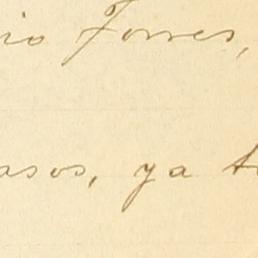 io Torres,
asos, ya t